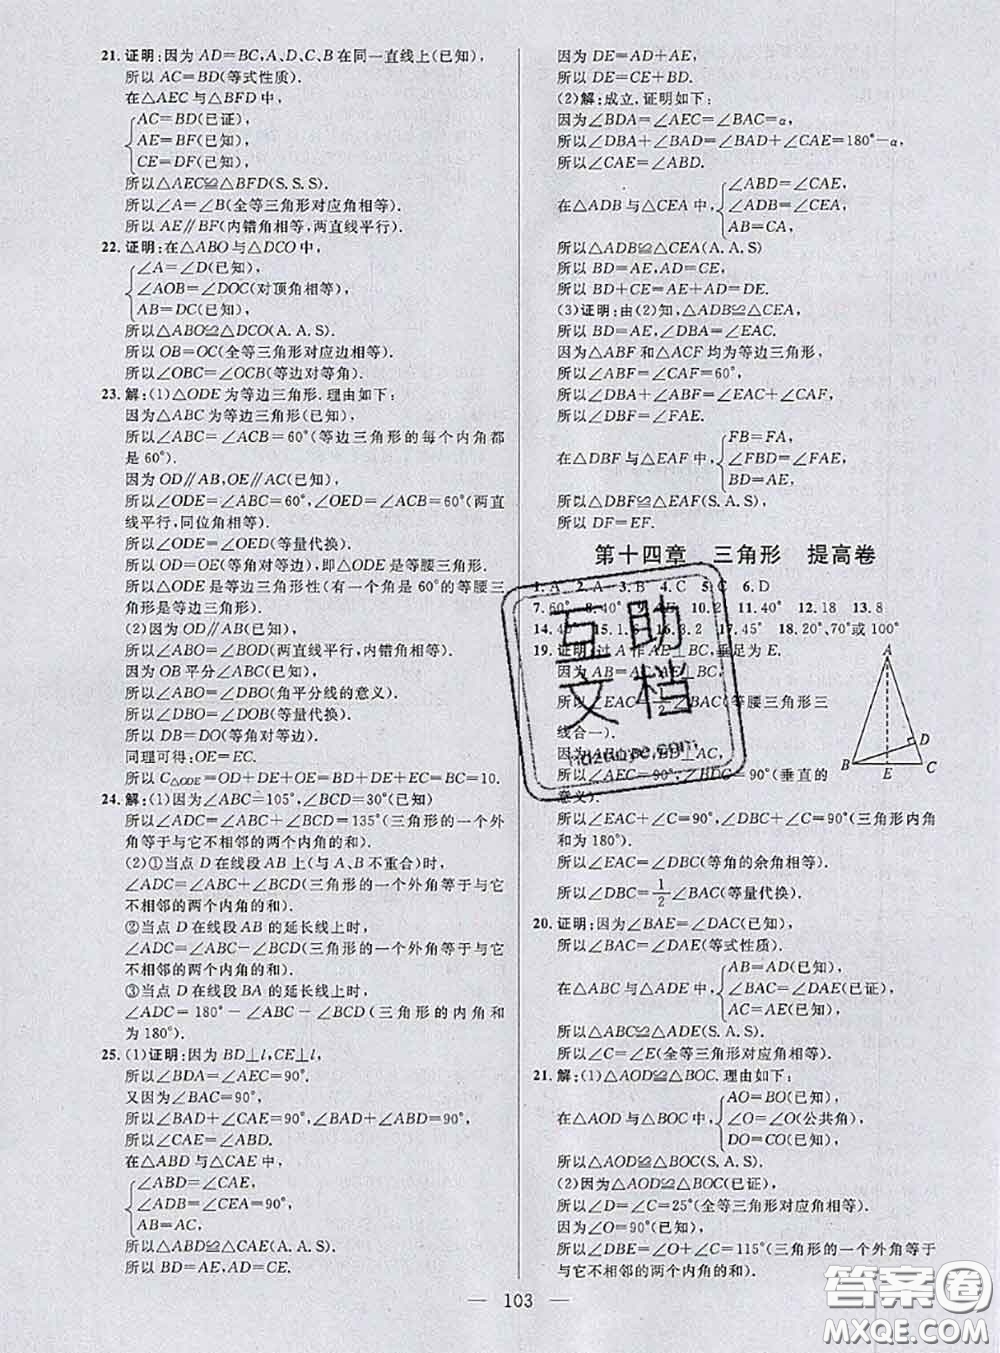 21. 证明:因为 AD=BC,A、D、C、B在同一直线上(已知),
所以 AC=BD(等式性质).
在△AEC与△BFD中,
AC=BD(已证),
AE=BF(已知),
CE=DF(已知),
所以△AEC≌△BFD(S.S.S).
所以∠A=∠B(全等三角形对应角相等).
所以 AE∥BF(内错角相等,两直线平行).
22. 证明:在△ABO与△DCO中,
∠A=∠D(已知),
∠AOB=∠DOC(对顶角相等),
AB=DC(已知),
所以△ABO≌△DCO(A.A.S).
所以 OB=OC(全等三角形对应边相等).
所以∠OBC=∠OCB(等边对等角).
23. 解:(1)△ODE为等边三角形.理由如下:
因为△ABC为等边三角形(已知),
所以∠ABC=∠ACB=60°(等边三角形的每个内角都
是60°).
因为 OD∥AB,OE∥AC(已知),
所以∠ODE=∠ABC=60°,∠OED=∠ACB=60°(两直
线平行,同位角相等).
所以∠ODE=∠OED(等量代换).
所以 OD=OE(等角对等边),即△ODE为等腰三角形.
所以△ODE是等边三角形性(有一个角是60°的等腰三
角形是等边三角形).
(2)因为 OD∥AB(已知),
所以∠ABO=∠BOD(两直线平行,内错角相等).
因为 OB平分∠ABC(已知),
所以∠ABO=∠DBO(角平分线的意义).
所以∠DBO=∠DOB(等量代换).
所以 DB=DO(等角对等边).
同理可得:OE=EC.
所以 C△ODE=OD+DE+OE=BD+DE+EC=BC=10.
24. 解:(1)因为∠ABC=105°,∠BCD=30°(已知)
所以∠ADC=∠ABC+∠BCD=135°(三角形的一个外
角等于与它不相邻的两个内角的和).
(2)①当点D在线段AB上(与A、B不重合)时,
∠ADC=∠ABC+∠BCD(三角形的一个外角等于与它
不相邻的两个内角的和).
②当点D在线段AB的延长线上时,
∠ADC=∠ABC-∠BCD(三角形的一个外角等于与它
不相邻的两个内角的和).
③当点D在线段BA的延长线上时,
∠ADC=180°-∠ABC-∠BCD(三角形的内角和
为180°).
25. (1)证明:因为 BD⊥l,CE⊥l,
所以∠BDA=∠AEC=90°.
又因为∠BAC=90°,
所以∠BAD+∠CAE=90°,∠BAD+∠ABD=90°,
所以∠CAE=∠ABD.
在△ABD与△CAE中,
∠ABD=∠CAE,
∠ADB=∠CEA=90°,
AB=AC,
所以△ABD≌△CAE(A.A.S).
所以 BD=AE,AD=CE.
因为 DE=AD+AE,
所以 DE=CE+BD.
(2)解:成立.证明如下:
因为∠BDA=∠AEC=∠BAC=α,
所以∠DBA+∠BAD=∠BAD+∠CAE=180°-α,
所以∠CAE=∠ABD.
∠ABD=∠CAE,
在△ADB与△CEA中, ∠ADB=∠CEA,
AB=CA,
所以△ADB≌△CEA(A.A.S)
所以 BD=AE,AD=CE,
所以 BD+CE=AE+AD=DE.
(3)证明:由(2)知,△ADB≌△CEA,
所以 BD=AE,∠DBA=∠EAC.
因为△ABF和△ACF均为等边三角形,
所以∠ABF=∠CAF=60°,
所以∠DBA+∠ABF=∠EAC+∠CAF,
所以∠DBF=∠FAE.
FB=FA,
在△DBF与△EAF中, ∠FBD=∠FAE,
BD=AE,
所以△DBF≌△EAF(S.A.S),
所以 DF=EF.
第十四章 三角形 提高卷
1. A 2. A 3. B 4. C 5. C 6. D
7. 60° 8. 40° 9. AE 10. 2 11. 40° 12. 18 13. 8
14. 15. 16. 17. 45° 18. 20°、70°或100°
19. 证明:过A作AE⊥BC,垂足为E.
因为 AB= AE⊥BC,
所以∠EAC= ∠BAC(等腰三角形三
线合一).
因为 BD⊥AC,
所以∠AEC=90°,∠BDC=90°(垂直的
意义).
所以∠EAC+∠C=90°,∠DBC+∠C=90°(三角形内角
和为180°).
所以∠EAC=∠DBC(等角的余角相等).
所以∠DBC=1/2∠BAC(等量代换).
A
B E C
D
20. 证明:因为∠BAE=∠DAC(已知),
所以∠BAC=∠DAE(等式性质).
AB=AD(已知),
在△ABC与△ADE中, ∠BAC=∠DAE(已证),
AC=AE(已知),
所以△ABC≌△ADE(S.A.S).
所以∠C=∠E(全等三角形对应角相等).
21. 解:(1)△AOD≌△BOC.理由如下:
AO=BO(已知),
在△AOD与△BOC中, ∠O=∠O(公共角),
DO=CO(已知),
所以△AOD≌△BOC(S.A.S).
(2)因为△AOD≌△BOC(已证),
所以∠D=∠C=25°(全等三角形对应角相等).
因为∠O=90°(已知),
所以∠DBE=∠O+∠C=115°(三角形的一个外角等于
与它不相邻的两个内角的和).
— 103 —
互助文档
答案圈
MXQE.COM